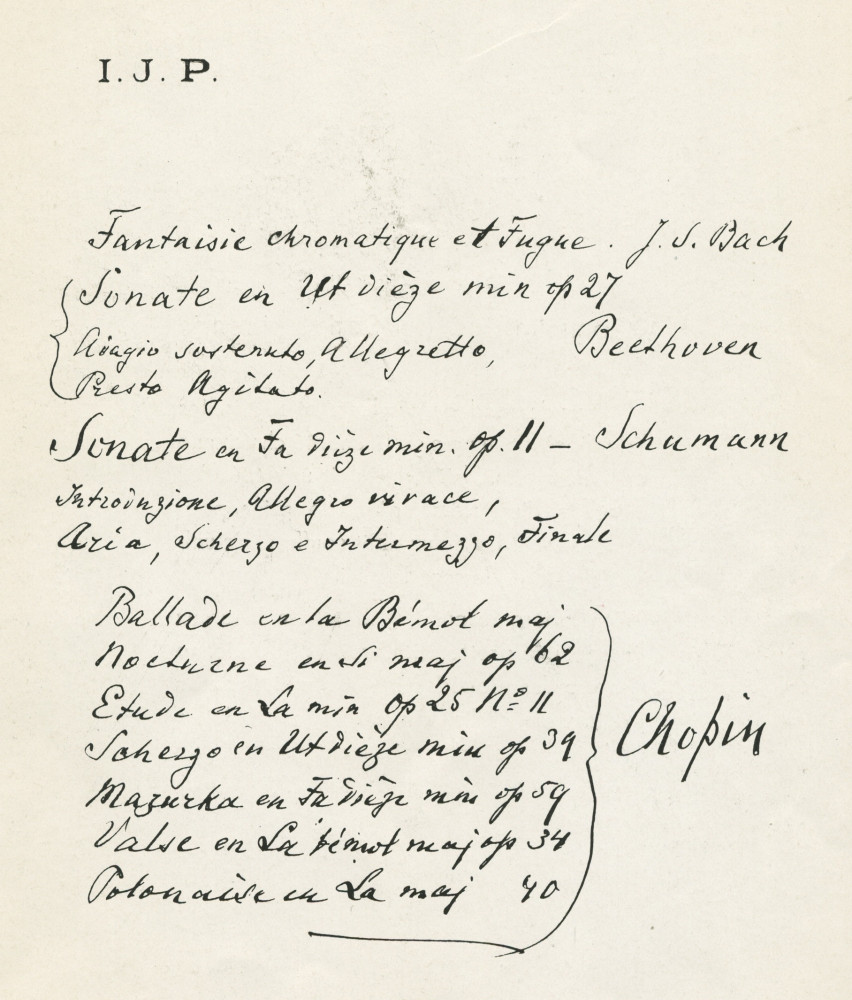 I. J. P.
Fantaisie chromatique et Fugue. J. S. Bach
Sonate en Ut dièze min op 27
Adagio sostenuto, Allegretto, Beethoven
Presto Agitato.
Sonate en Fa dièze min. op. 11 — Schumann
Introduzione, Allegro vivace,
Aria, Scherzo e Intermezzo, Finale
Ballade en la Bémol maj
Nocturne en Si maj op 62
Etude en La min op 25 No 11
Scherzo en Ut dièze min op 39
Mazurka en Fa dièze min op 59
Valse en La bémol maj op 34
Polonaise en La maj 40
Chopin